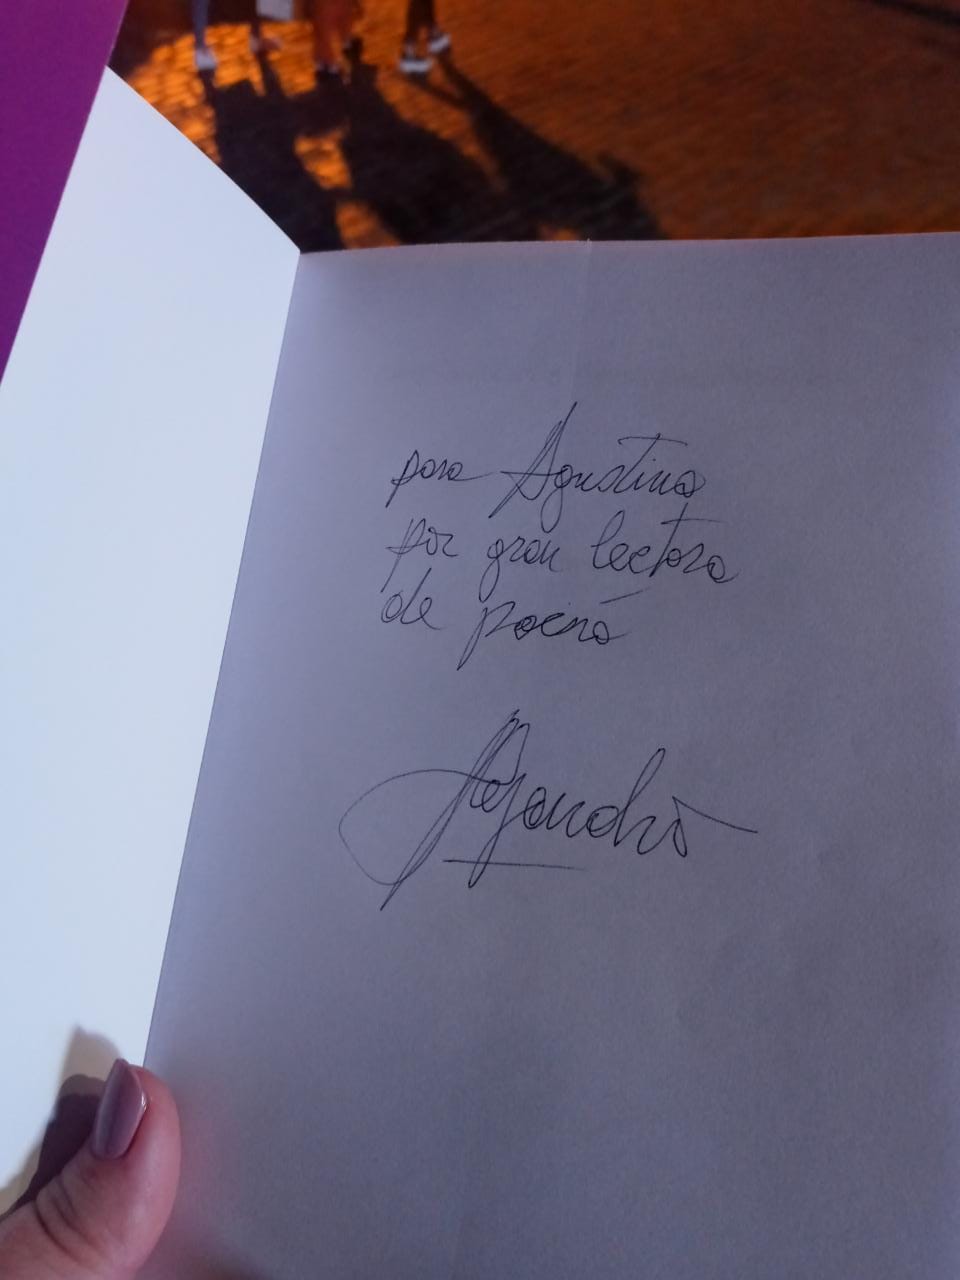 para Agustina
por gran lectora
de poesía
Alejandro